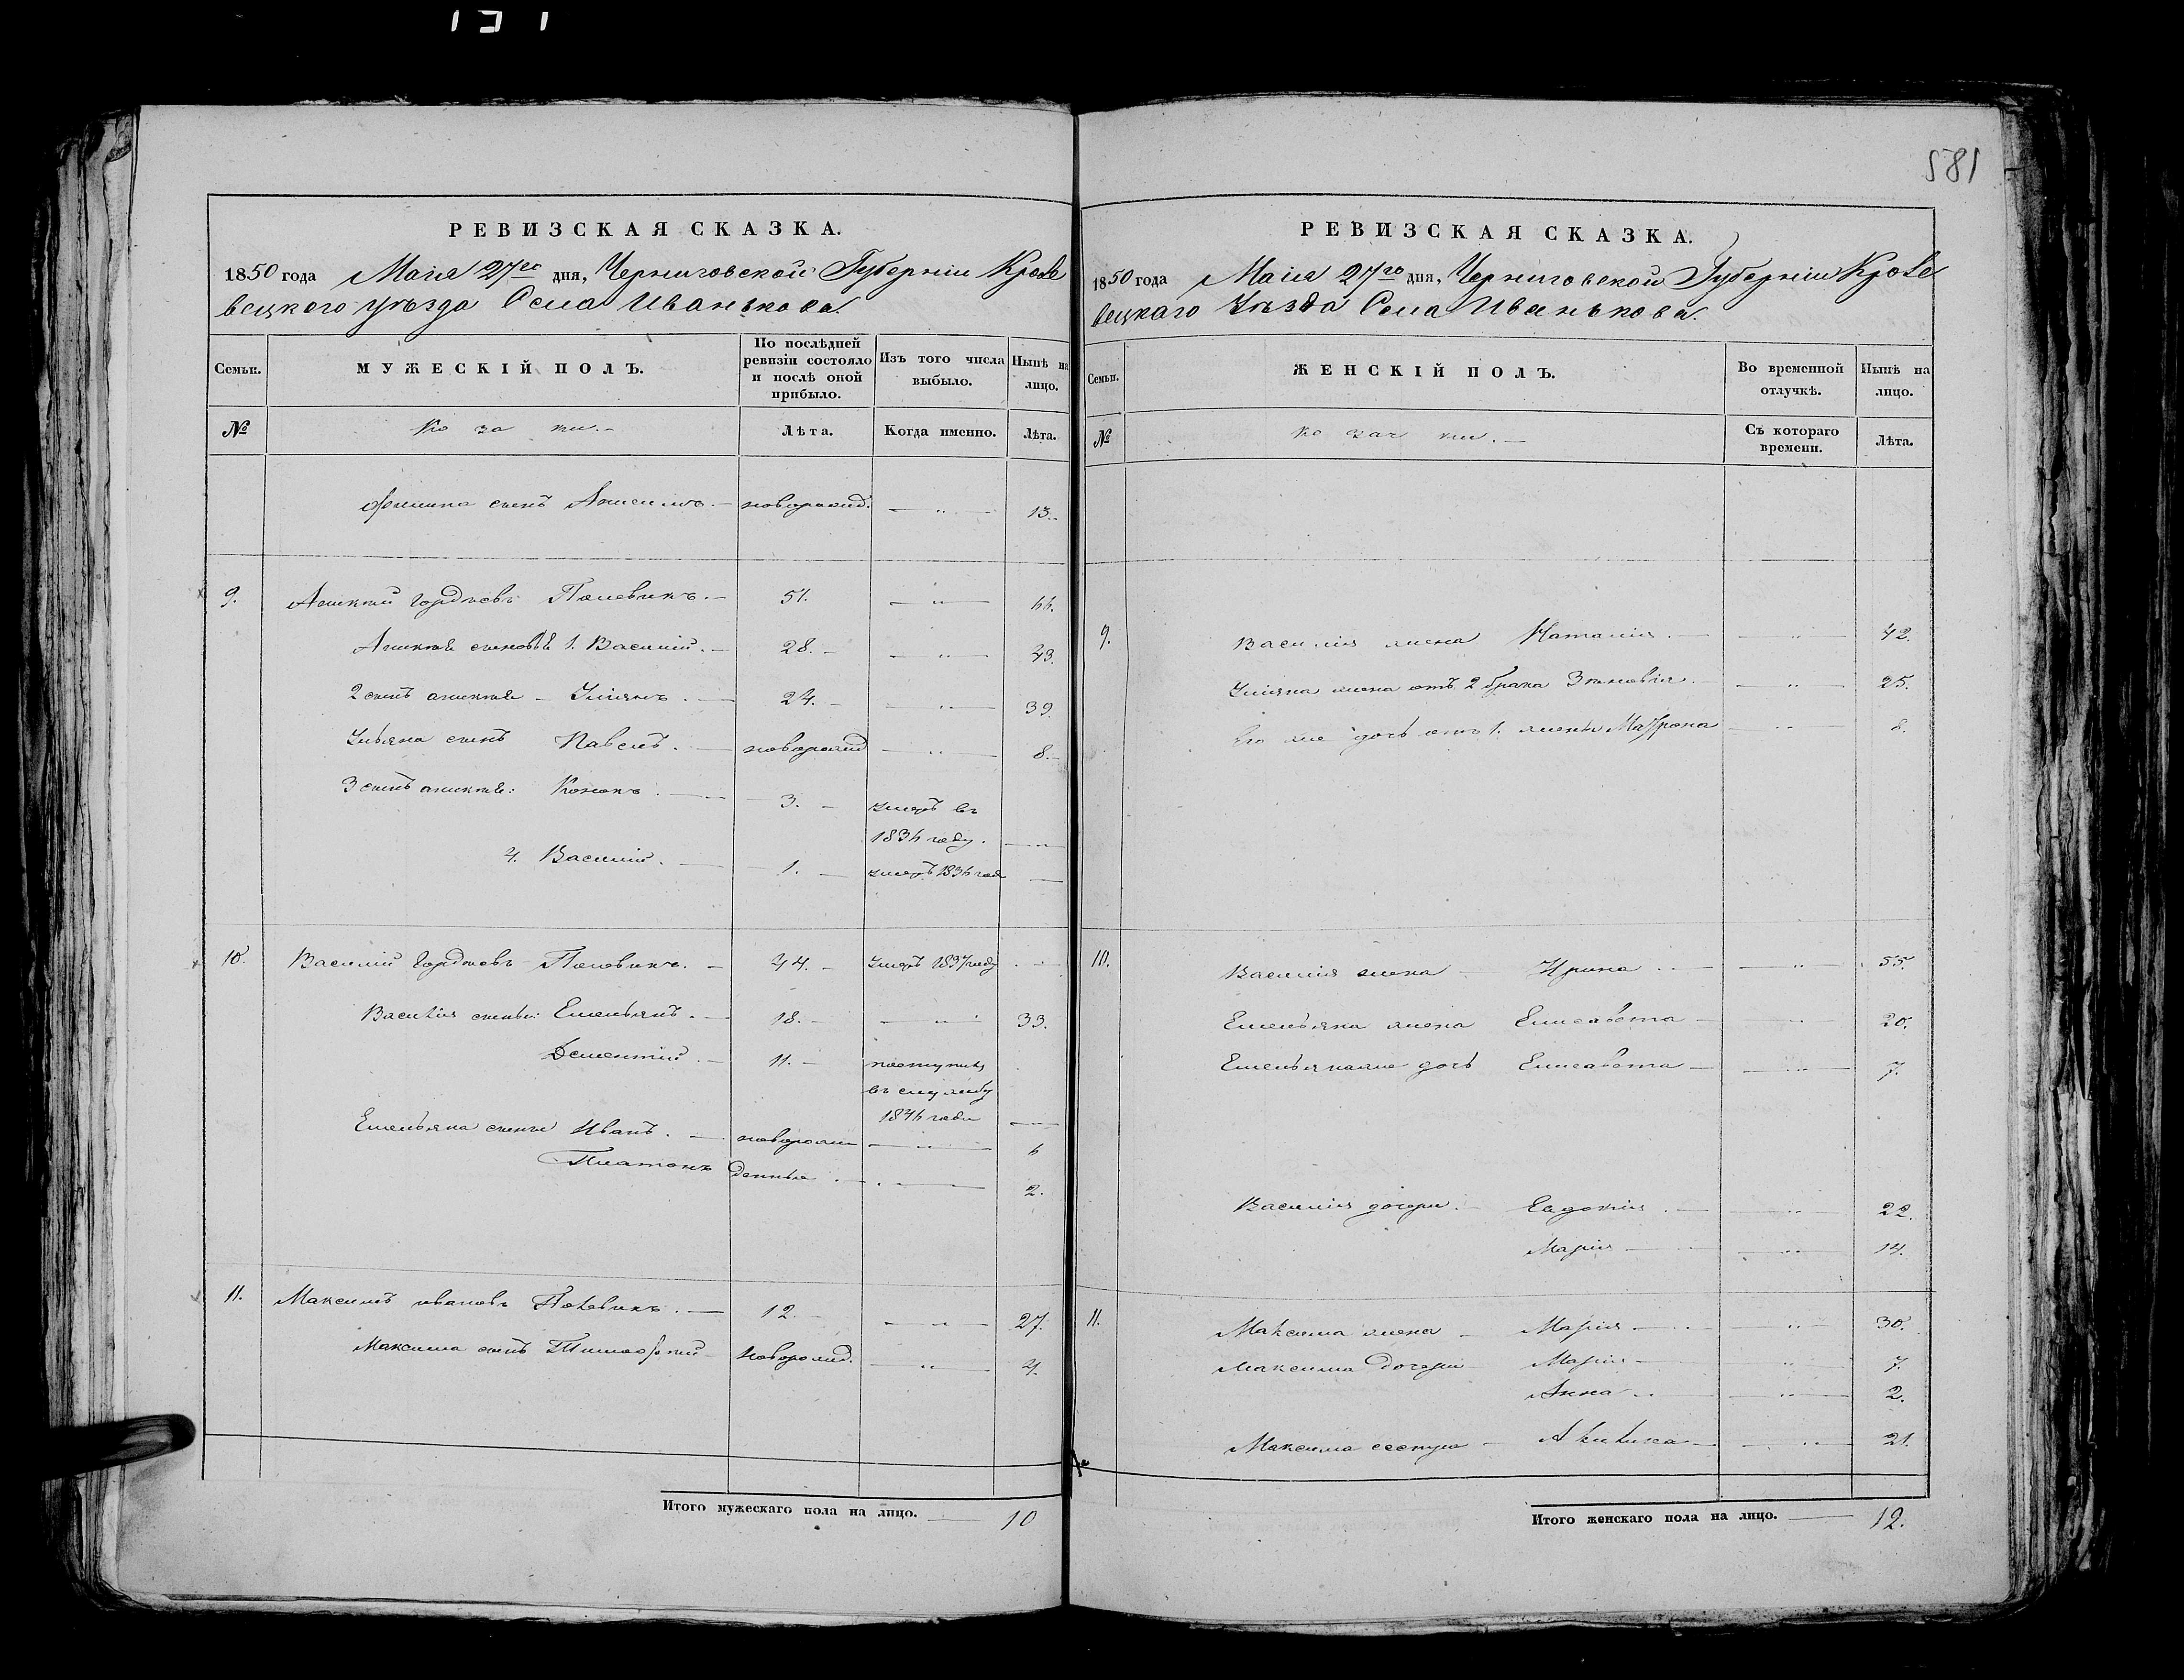 581
РЕВИЗСКАЯ СКАЗКА.
1850 года Маія 27го дня, Черниговской Губерніи Кроле
вецкого уѣзда Села Иванькова.
Семьи. МУЖЕСКІЙ ПОЛЪ. По послѣдней ревизіи состояло и послѣ оной прибыло. Изъ того числа выбыло. Нынѣ на лицо.
№ Козаки. Лѣта. Когда именно. Лѣта.
сынъ новорожд. 13.
9. Гордѣевъ 51. 66.
сыновья 1. Василій. 28. 43.
2 сынъ Уліянъ. 24. 39.
Ульяна сынъ Павелъ. новорожд 8.
3 сынъ Кононъ. 3. умеръ въ
1836 году.
4. Василій. 1. умеръ 1836 года
10. Василій Гордѣевъ 44. умеръ 1837 году
Василія сыны: Емельянъ. 18. 33.
Дементій. 11. поступилъ
въ службу
1846 года
Емельяна сыны Иванъ. новорож 6
Платонъ денные 2.
11. Максимъ Ивановъ Полевикъ. 12. 27.
Максима сынъ Тимофей новорожд. 4.
Итого мужескаго пола на лицо. 10
РЕВИЗСКАЯ СКАЗКА.
1850 года Маія 27го дня, Черниговской Губерніи Кроле
вецкаго Уѣзда Села Иванькова.
Семьи. ЖЕНСКІЙ ПОЛЪ. Во временной отлучкѣ. Нынѣ на лицо.
№ Козачки. Съ котораго времени. Лѣта.
9. Василія жена Наталія. 42.
Уліяна жена отъ 2 брака Зѣновія. 25.
Его же дочь отъ 1. жены Матрона 8.
10. Василія жена Ирина 55.
Емельяна жена Елисавета 20.
Емельяна же дочь Елисавета 7.
Василія дочери Евдокія 22.
Марія 14.
11. Максима жена Марія 30.
Максима дочери Марія 7.
Анна 2.
Максима сестра Акилина 21.
Итого женскаго пола на лицо. 12.